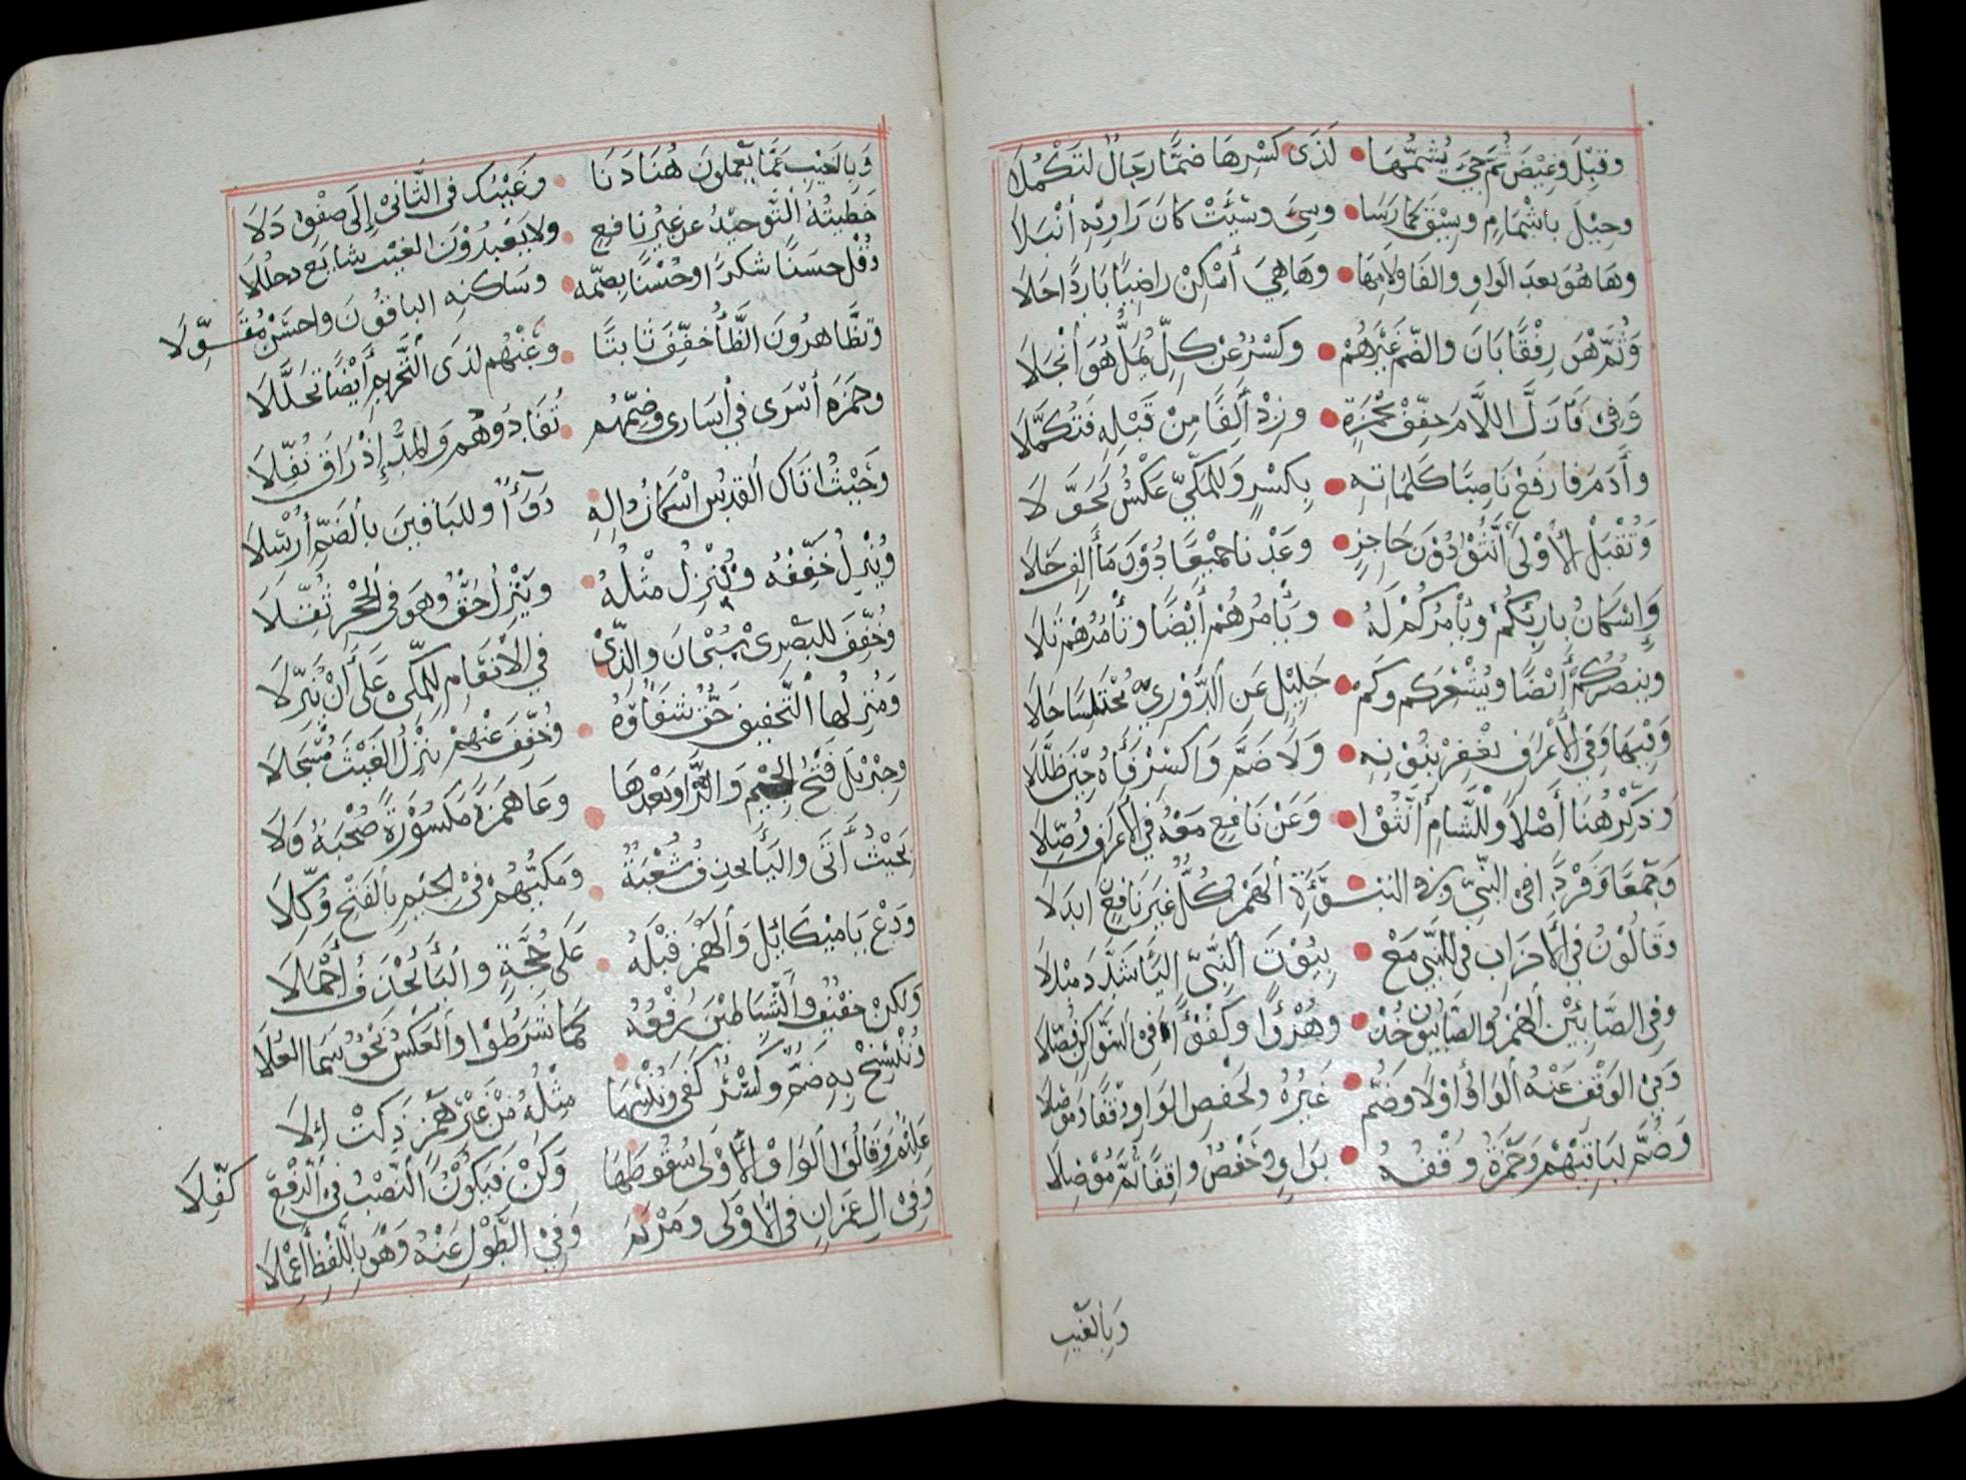 وَقِيْلَ وَغِيْضَ ثُمَّ جِيَ يُشِمُّهَا • لَدَى كَسْرِهَا ضَمًّا رِجَالٌ لِتَكْمُلَا
وحِيْلَ بِاشْمَامٍ وسِيْقَ كَمَا رَسَا • وسِيَ وسِيْئَتْ كَانَ رَاوِيْهِ أَنْبَلَا
وهَا هُوَ بعدَ الوَاوِ والفَا ولَامِهَا • وهَا هِيَ أَسْكِنْ رَاضِيًا بَارِدًا حَلَا
وَثُمَّ هْوَ رِفْقًا بَانَ والضّمُ غَيْرُهُمْ • وكَسْرٌ وعَنْ كلٍّ يُمِلَّ هُوَ انْجَلَا
وَفِي فَأزَلَّ اللَّامَ خفِّفْ لِحَمْزَةٍ • وزِدْ أَلِفًا مِنْ قَبْلِهِ فَتُكَمِّلَا
وأَدَمَ فارفَعْ نَاصِبًا كَلِمَاتِهِ • بِكَسْرٍ وَللمَكِّيِّ عَكْسٌ تَحَوَّلَا
وَتُقْبَلُ الْأُوْلَى أَنَّثُوْا دُوْنَ حَاجِزٍ • وعَدْنَا جَمِيْعًا دُوْنَ مَا أَلِفٍ حَلَا
وَإِسْكَانُ بَارِئِكُمْ وَيَأْمُرُكُمْ لَهُ • وَيَأْمُرُهُمْ أَيْضًا وَتَأْمُرُهُمْ تَلَا
وينصُرُكُمْ أَيْضًا ويُشْعِرُكم وكَمْ • جَلِيْلٍ عَنِ الدُّوْرِيِّ مُخْتَلِسًا جَلَا
وَفِيْهَا وَفِي الْأَعْرَافِ نَغْفِرْ بِنُوْنِهِ • وَلَا ضَمَّ وَاكْسِرْ فَاءَهُ حِيْنَ ظَلَّلَا
وَذَكِّرْ هُنَا أَصْلًا وَلِلشَّامِ أَنَّثُوْا • وَعَنْ نَافِعٍ مَعْهُ فِي الْأَعْرَافِ وُصِّلَا
وَجَمْعًا وَفَرْدًا فِي النَّبِيِّ وفي النُبُوَّءَةِ الهَمْزَ كُلٌّ غَيْرَ نَافِعٍ ابْدَلَا
وَقَالُوْنُ فِي الْأَحْزَابِ فِي للنَّبِيِّ مَعْ • بِيُوْتَ النَّبِيِّ اليَاءَ شَدَّدَ مبْدِلَا
وفِي الصَّابِئِيْنَ الهَمْزُ والصَّابِئُونَ خُذْ • وهُزْؤًا وكُفْؤًا فِي السَّوَاكِنِ فُصِّلَا
وَفِي الوَقْفِ عَنْهُ الْوَاوُ أوْلَا وَضُمَّ • غَيْرُهُ ولحَفْصِ الوَاو وَقْفًا وَمَوْصِلَا
وَضُمَّ لِبَاقِيْهِمْ وَحَمْزَةُ وَقْفُهُ • بِوَاوٍ وَحَفْصٌ وَاقِفًا ثُمَّ مُوْصِلَا
وَبِالْغَيْبِ
وَبِالغَيْبِ عَمَّا يَعْمَلونَ هُنَا دَنَا • وَغَيْبُكَ فِي الثَّانِيْ إِلَى صَفْوِهِ دَلَا
خَطِيئَتُهُ التَّوحِيْدُ عَن غَيْرِ نَافِعٍ • ولا يَعْبُدُوْنَ الغَيْبَ شَايَعَ دخْلُلَا
وَقُلْ حَسَنًا شكرًا وحُسْنًا بِضَمِّهِ • وسَاكنِهِ البَاقُونَ واحسَنْ مُقَوِّلَا
وتَظَّاهَرُونَ الظَّاءُ خفِّفَ ثَابِتًا • وَعَنْهُم لَدَى التَّحْرِيمِ أَيْضًا تَحَلَّلَا
وحَمْزَة أَسْرَى فِي أُسَارَى وَضَمّهُم • تُفَادُوْهُم وَالمَدُّ إِذْ رَاقَ نُفِّلَا
وَحَيْثُ اتَاكَ القُدُسُ اسْكَانُ دَالِهِ • دَوَاءٌ وللبَاقِينَ بِالضَّمِّ أُرْسِلَا
وَيُنْزِلُ خَفِّفْهُ وَتُنْزِلُ مِثْلُهُ • ويُنْزِلُ حَقٌّ وهوَ في الحِجْرِ ثُقِّلَا
وَخُفِّفَ للبَصْرِيْ بِسُبْحَانَ والَّذِيْ • فِي الْأَنْعَامِ للمكِّيْ عَلَى أَنْ يُنَزِّلَا
وَمُنْزِلُهَا التَّخْفِيفُ حَقٌّ شِفَاؤُهُ • وَخُفِّفَ عَنْهُمْ يُنْزِلُ الغَيْثَ مُسْجَلَا
وَجِبْرِيْلَ فَتْحُ الجِيْمِ وَالرَّا وَبَعْدَهَا • وَعَا هَمْزَةً مَكْسُوْرَةً صُحْبَةٌ وَلَا
بَحَيْثُ أَتَى واليَاءَ يحذِفُ شُعْبَةٌ • وَمَكيُّهُمْ فِي الجِيمِ بِالفَتْحِ وُكِّلَا
وَدَعْ يَاءَ مِيْكَائِيْلَ وَالهَمْزَ قَبْلَهُ • عَلَى حُجَّةٍ واليَاءُ يُحْذَفُ أَجْمَلَا
وَلكِنْ خَفِيْفٌ والشَّيَاطِيْنُ رَفْعُهُ • كَمَا شَرَطُوْا والعَكْسُ نَحْوٌ سَمَا العُلَا
وَنُنْسَخْ بِهِ ضَمٌّ وَكَسْرٌ كَفَى وَنُنْسِهَا • مِثْلُهُ مِنْ غَيْرِ هَمْزٍ ذَكَتْ إِلَا
عَلِيْمٌ وَقَالُوا الوَاوُ الْأُوْلَى سُقُوطُهَا • وَكُنْ فَيَكُوْنُ النَّصْبُ فِي الرَّفْعِ كُفِّلَا
وَفِي الِ عِمْرَانٍ فِي الْأُوْلَى ومَرْيَمَ • وَفِي الطَّوْلِ عَنْهُ وَهْوَ بِاللَّفْظِ أُعْمِلَا